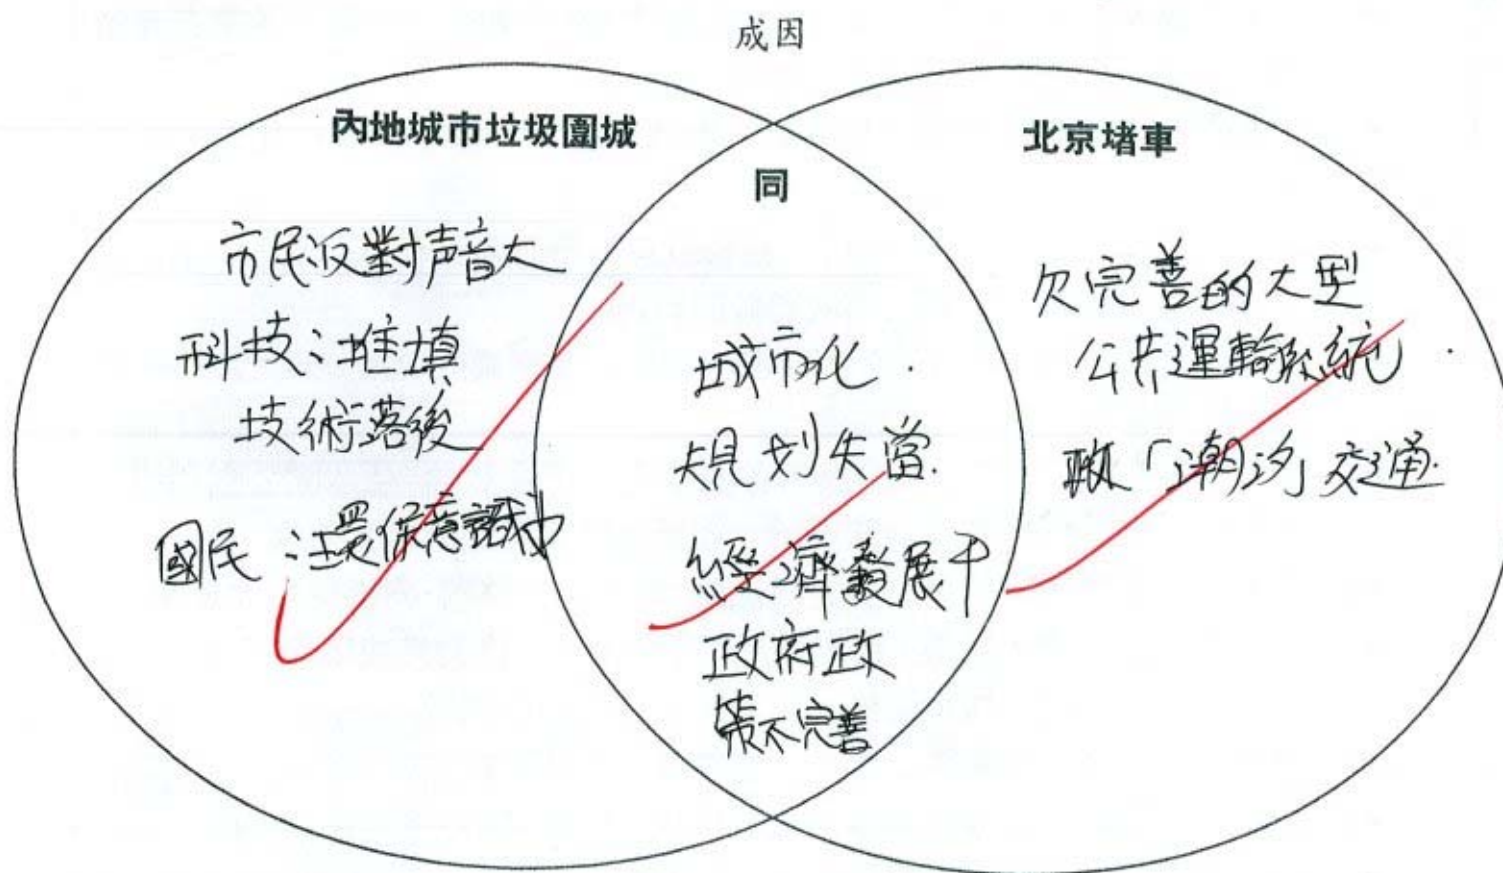 成因
內地城市垃圾圍城
市民反對声音大
科技:堆填
技術落後
國民:環保意識
同
城市化.
規划失當.
經濟發展
政府政
策不完善
北京堵車
欠完善的大型
公共運輸系統.
「潮汐」交通.